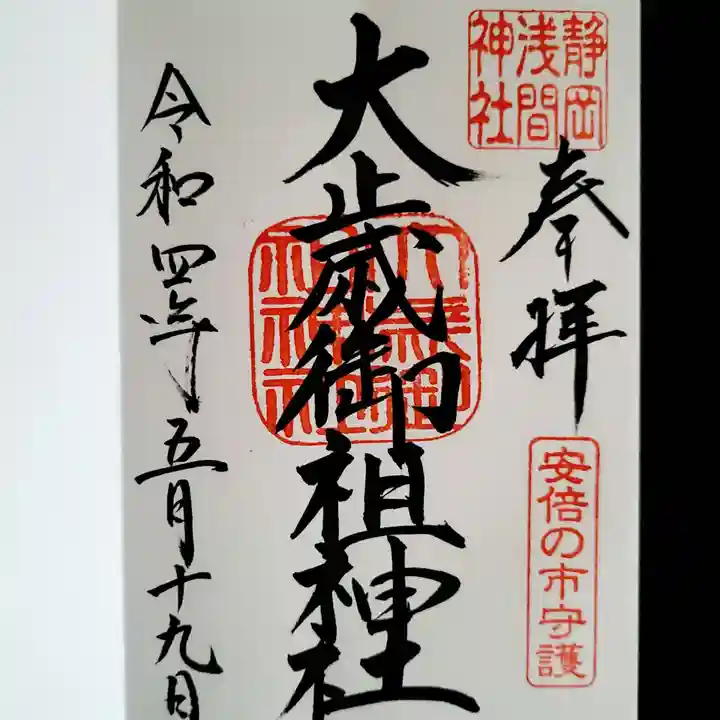 静岡
浅間
神社
奉拝
安倍の市守護
大歳御祖神社
令和四年五月十九日